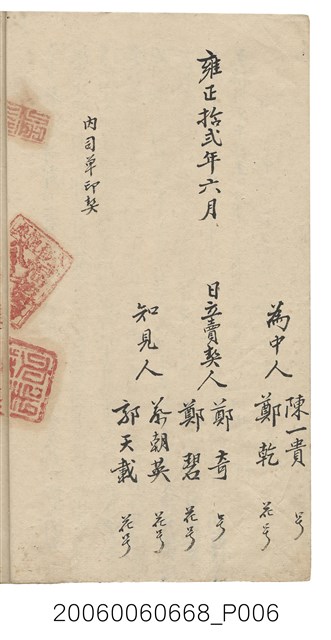 為中人
陳一貴 号
鄭乾 花号
雍正拾弍年六月 日立賣契人
鄭奇 号
鄭碧 花号
知見人
蔡朝英 花号
郭天載 花号
内司單印契
20060060668_P006